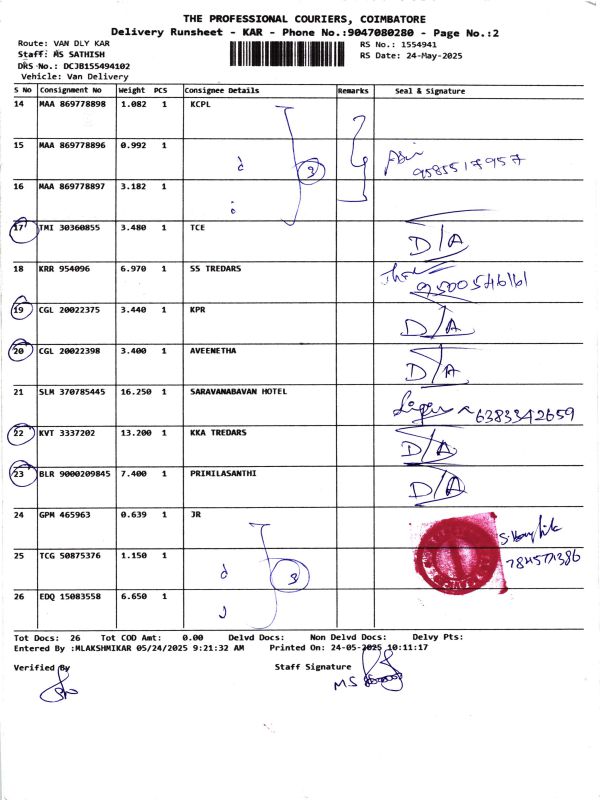 THE PROFESSIONAL COURIERS, COIMBATORE
Delivery Runsheet - KAR - Phone No.:9047080280 - Page No.:2
Route: VAN DLY KAR RS No.: 1554941
Staff: MS SATHISH RS Date: 24-May-2025
DRS No.: DCJB155494102
Vehicle: Van Delivery
S No Consignment No Weight PCS Consignee Details Remarks Seal & Signature
14 MAA 869778898 1.082 1 KCPL
15 MAA 869778896 0.992 1 3 9585517957
16 MAA 869778897 3.182 1
17 TMI 30360855 3.480 1 TCE D/A
18 KRR 954096 6.970 1 SS TREDARS 9500546161
19 CGL 20022375 3.440 1 KPR D/A
20 CGL 20022398 3.400 1 AVEENETHA D/A
21 SLM 370785445 16.250 1 SARAVANABAVAN HOTEL 6383342659
22 KVT 3337202 13.200 1 KKA TREDARS D/A
23 BLR 9000209845 7.400 1 PRIMILASANTHI D/A
24 GPM 465963 0.639 1 JR
25 TCG 50875376 1.150 1 3
26 EDQ 15083558 6.650 1
Tot Docs: 26 Tot COD Amt: 0.00 Delvd Docs: Non Delvd Docs: Delvy Pts:
Entered By :MLAKSHMIKAR 05/24/2025 9:21:32 AM Printed On: 24-05-2025 10:11:17
Verified By Staff Signature
M S